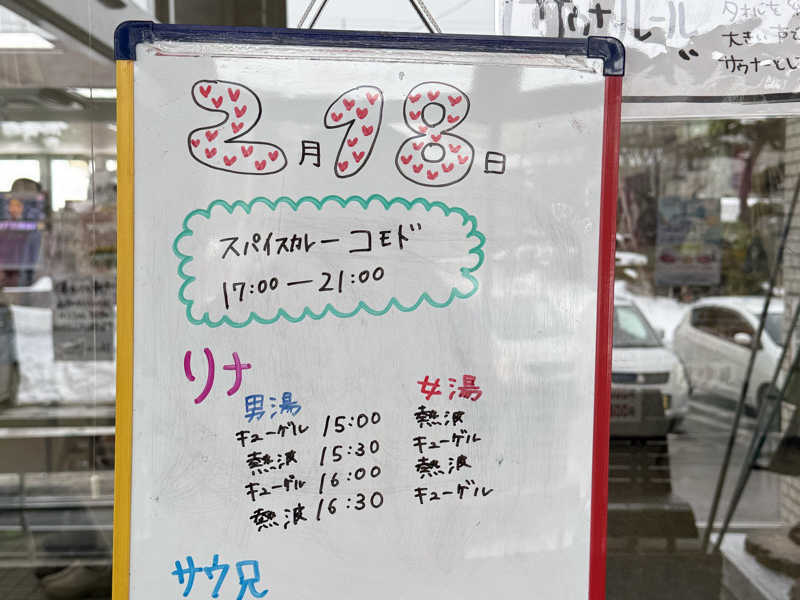 サウナルール
大きい声で
2月18日
スパイスカレー コモド
17:00ー21:00
リナ
男湯 女湯
キューゲル 15:00 熱波
熱波 15:30 キューゲル
キューゲル 16:00 熱波
熱波 16:30 キューゲル
サウ兄